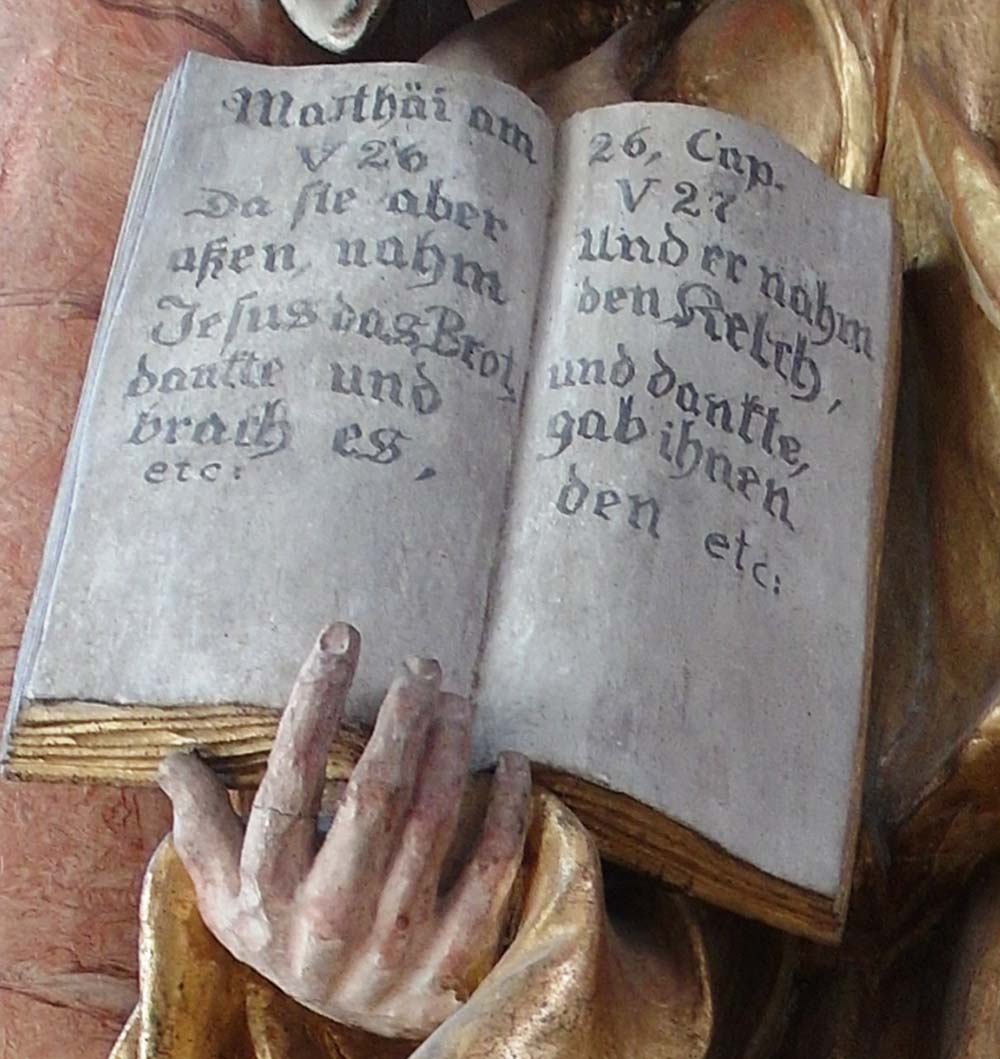 Matthäi am
V 26
Da sie aber
aßen, nahm
Jesus das Brot,
dankte und
brach es,
etc:
26, Cap.
V 27
Und er nahm
den Kelch,
und dankte,
gab ihnen
den etc: